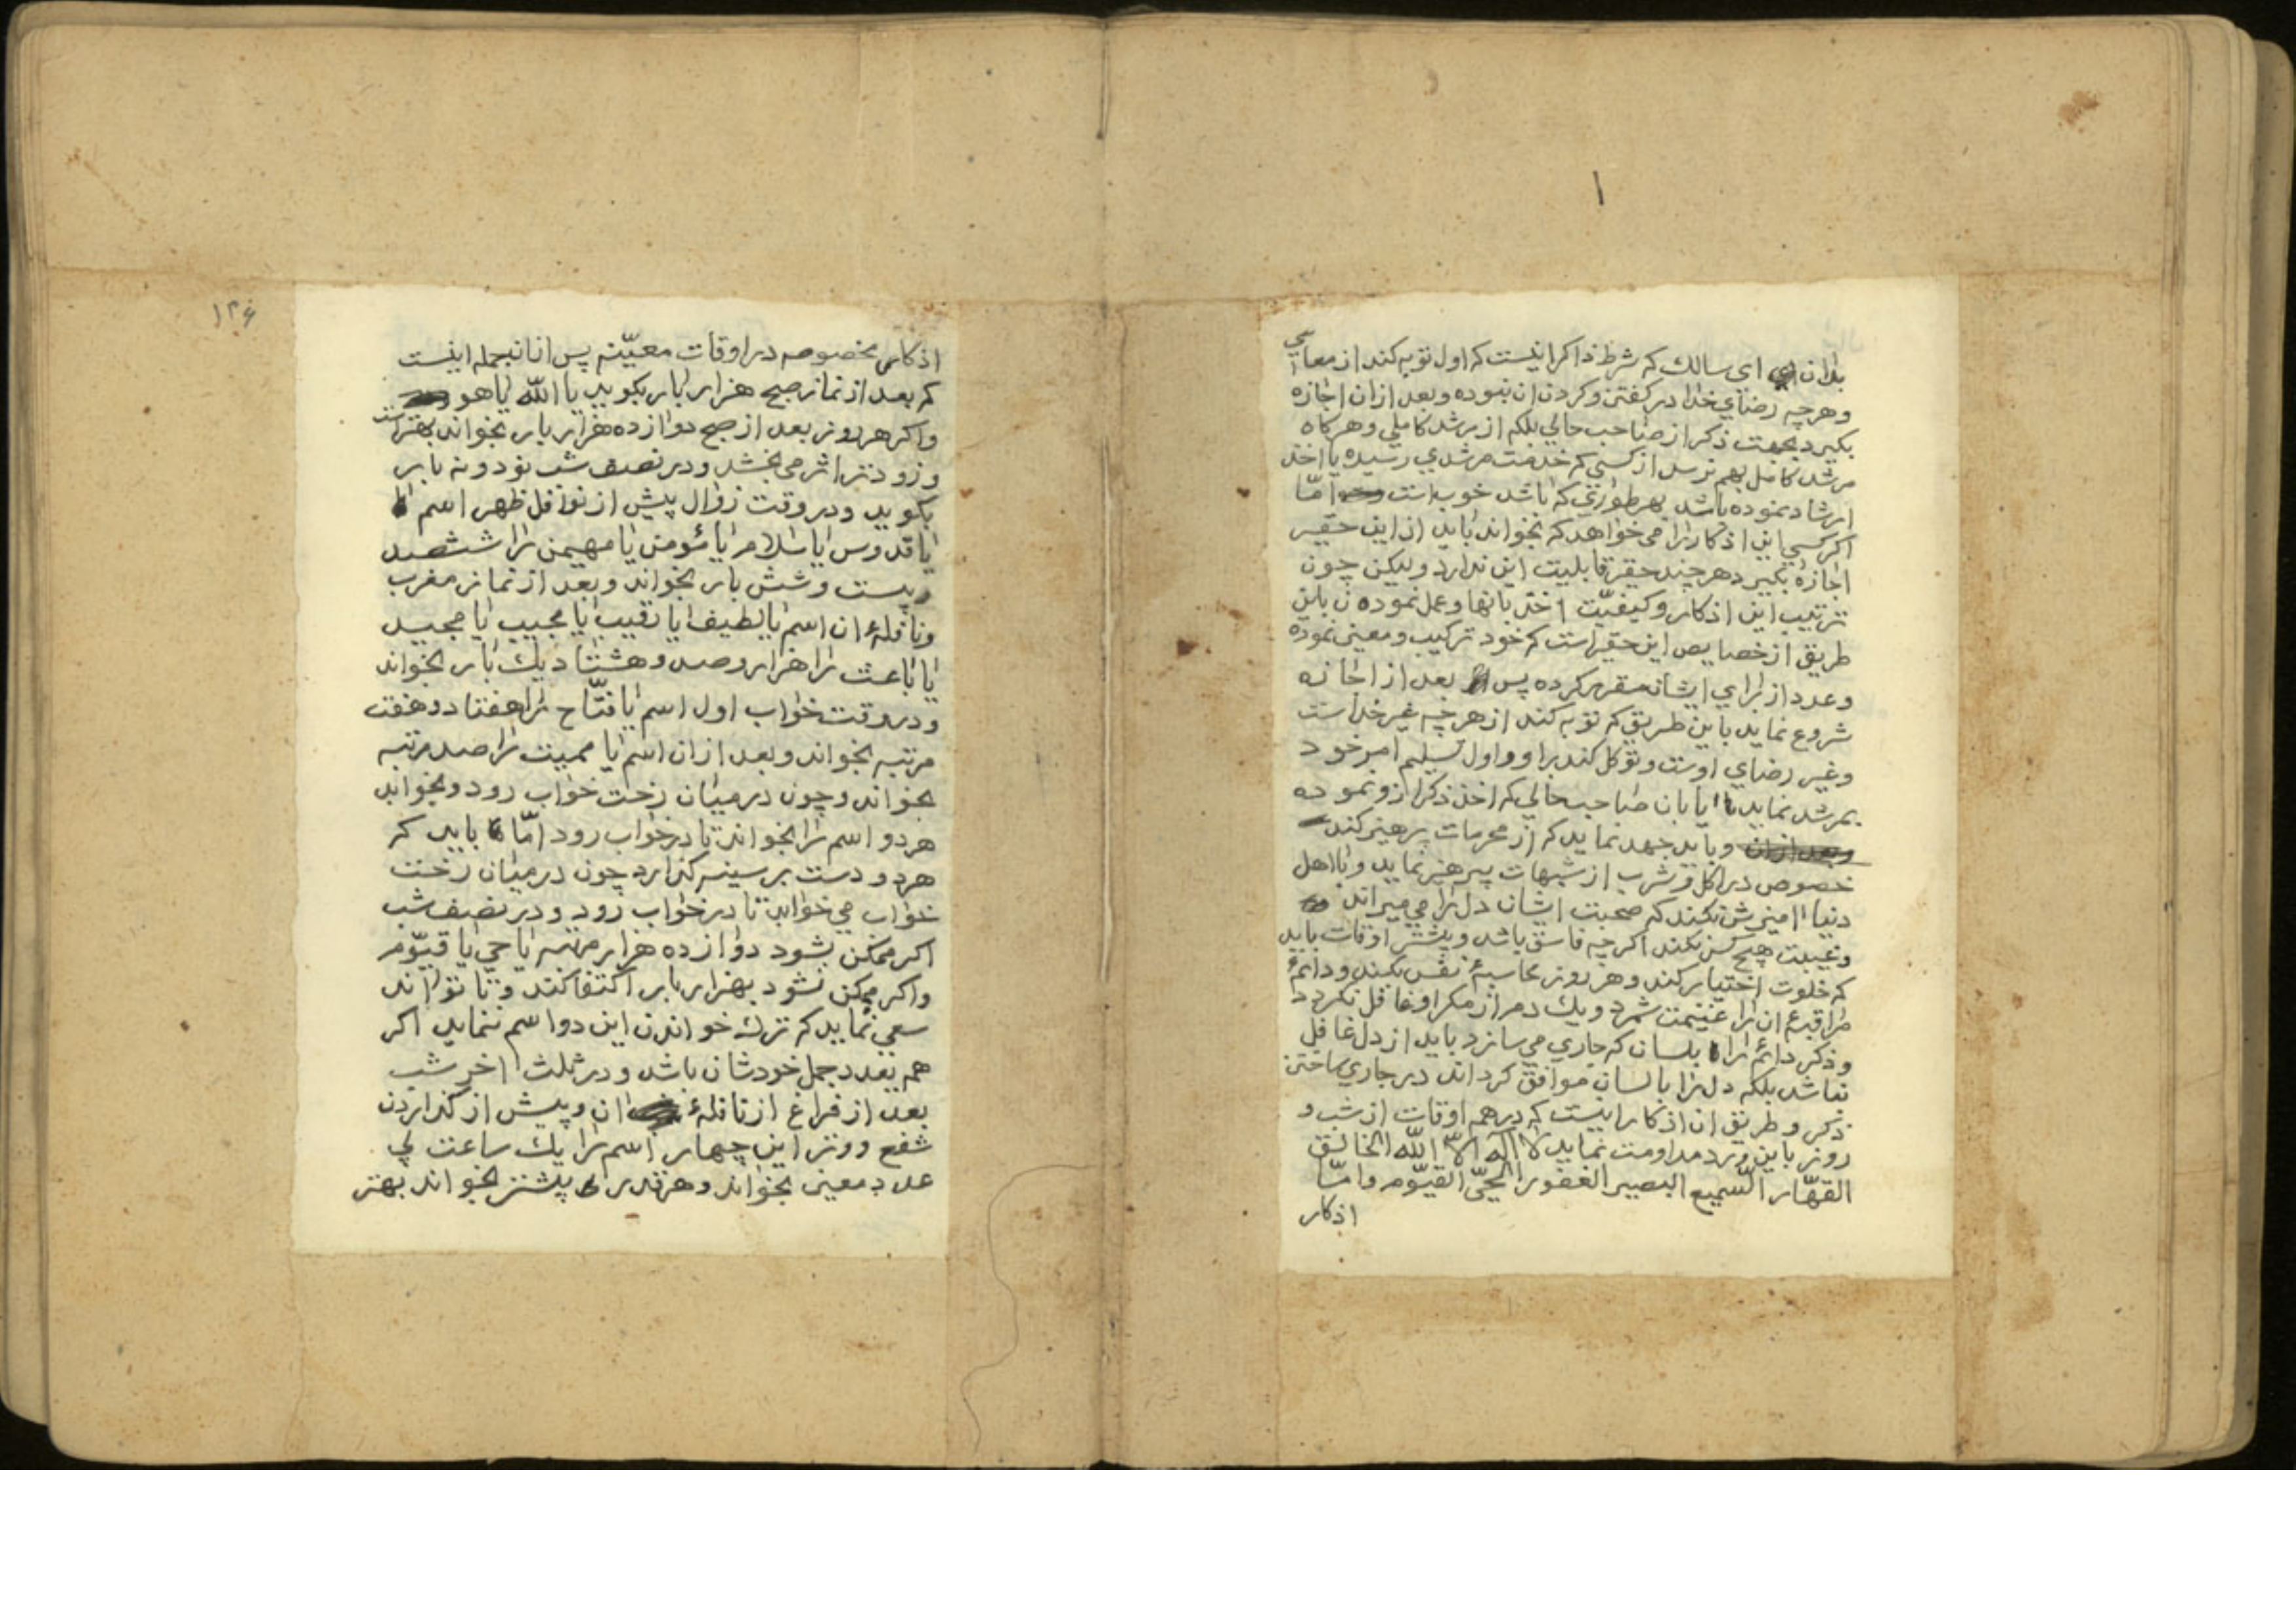 ۱
بدان ای سالك که شرط ذاکر اینست که اول توبه کند از معاصی
وهرچه رضای خدا در کفتن وکردن ان نبوده وبعد ازان اجازه
بکیرد بجهت ذکر از صاحب حالی بلکه از مرشد کاملی وهرکاه
مرشد کامل بهم نرسد از کسی که خدمت مرشدی رسیده یا اخذ
ارشاد نموده باشد بهر طوری که باشد خوب است امّا
اکر کسی این اذکار را می خواهد که بخواند باید از این حقیر
اجازه بکیرد هرچند حقیر قابلیت این ندارد ولیکن چون
ترتیب این اذکار وکیفیّت اخذ بانها وعمل نمودن باین
طریق از خصایص این حقیر است که خود ترکیب ومعین نموده
وعدد از برای ایشان مقرر کرده پس بعد از اجازه
شروع نماید باین طریق که توبه کند از هرچه غیر خداست
وغیر رضای اوست وتوکل کند براو واول تسلیم امر خود
بمرشد نماید یا بان صاحب حالی که اخذ ذکر ازو نموده
وباید جهد نماید که از محرمات پرهیز کند
خصوص در اکل وشرب از شبهات پرهیز نماید وبا اهل
دنیا امیزش نکند که صحبت ایشان دل را می میراند
وغیبت هیچ کس نکند اکرچه فاسق باشد وبیشتر اوقات باید
که خلوت اختیار کند وهر روز محاسبهٔ نفس بکند ودائم
مراقبهٔ ان را غنیمت شمرد ویك دم از مکر او غافل نکردد
وذکر دائم را بلسان که جاری می سازد باید از دل غافل
نباشد بلکه دل را با لسان موافق کرداند در جاری ساختن
ذکر وطریق ان اذکار اینست که در همه اوقات از شب و
روز باین ورد مداومت نماید لا اله الّا اللّه الخالق
القهّار السّمیع البصیر الغفور الحیّ القیّوم وامّا
اذکار
۱۳۶
اذکار مخصوصه در اوقات معیّنه پس ازانجمله اینست
که بعد از نماز صبح هزار بار بکوید یا اللّه یا هو
واکر هر روز بعد از صبح دوازده هزار بار بخواند بهتر است
وزودتر اثر می بخشد ودر نصف شب نود ونه بار
بکوید ودر وقت زوال پیش از نوافل ظهر اسم
یا قدوس یا سلام یا مؤمن یا مهیمن را ششصد
وبیست وشش بار بخواند وبعد از نماز مغرب
ونافلهٔ ان اسم یا لطیف یا رقیب یا مجیب یا مجید
یا باعث را هزار وصد وهشتاد یك بار بخواند
ودر وقت خواب اول اسم یا فتّاح را هفتاد وهفت
مرتبه بخواند وبعد ازان اسم یا ممیت را صد مرتبه
بخواند وچون در میان رخت خواب رود وبخوابد
هر دو اسم را بخواند تا در خواب رود امّا باید که
هر دو دست بر سینه کذارد چون در میان رخت
خواب می خوابد تا در خواب رود ودر نصف شب
اکر ممکن بشود دوازده هزار مرتبه یا حی یا قیّوم
واکر ممکن نشود بهزار بار اکتفا کند وتا تواند
سعی نماید که ترك خواندن این دو اسم ننماید اکر
هم بعدد جمل خودشان باشد ودر ثلث اخر شب
بعد از فراغ از نافلهٔ ان وپیش از کذاردن
شفع ووتر این چهار اسم را یك ساعت بی
عدد معین بخواند وهر قدر بیشتر بخواند بهتر